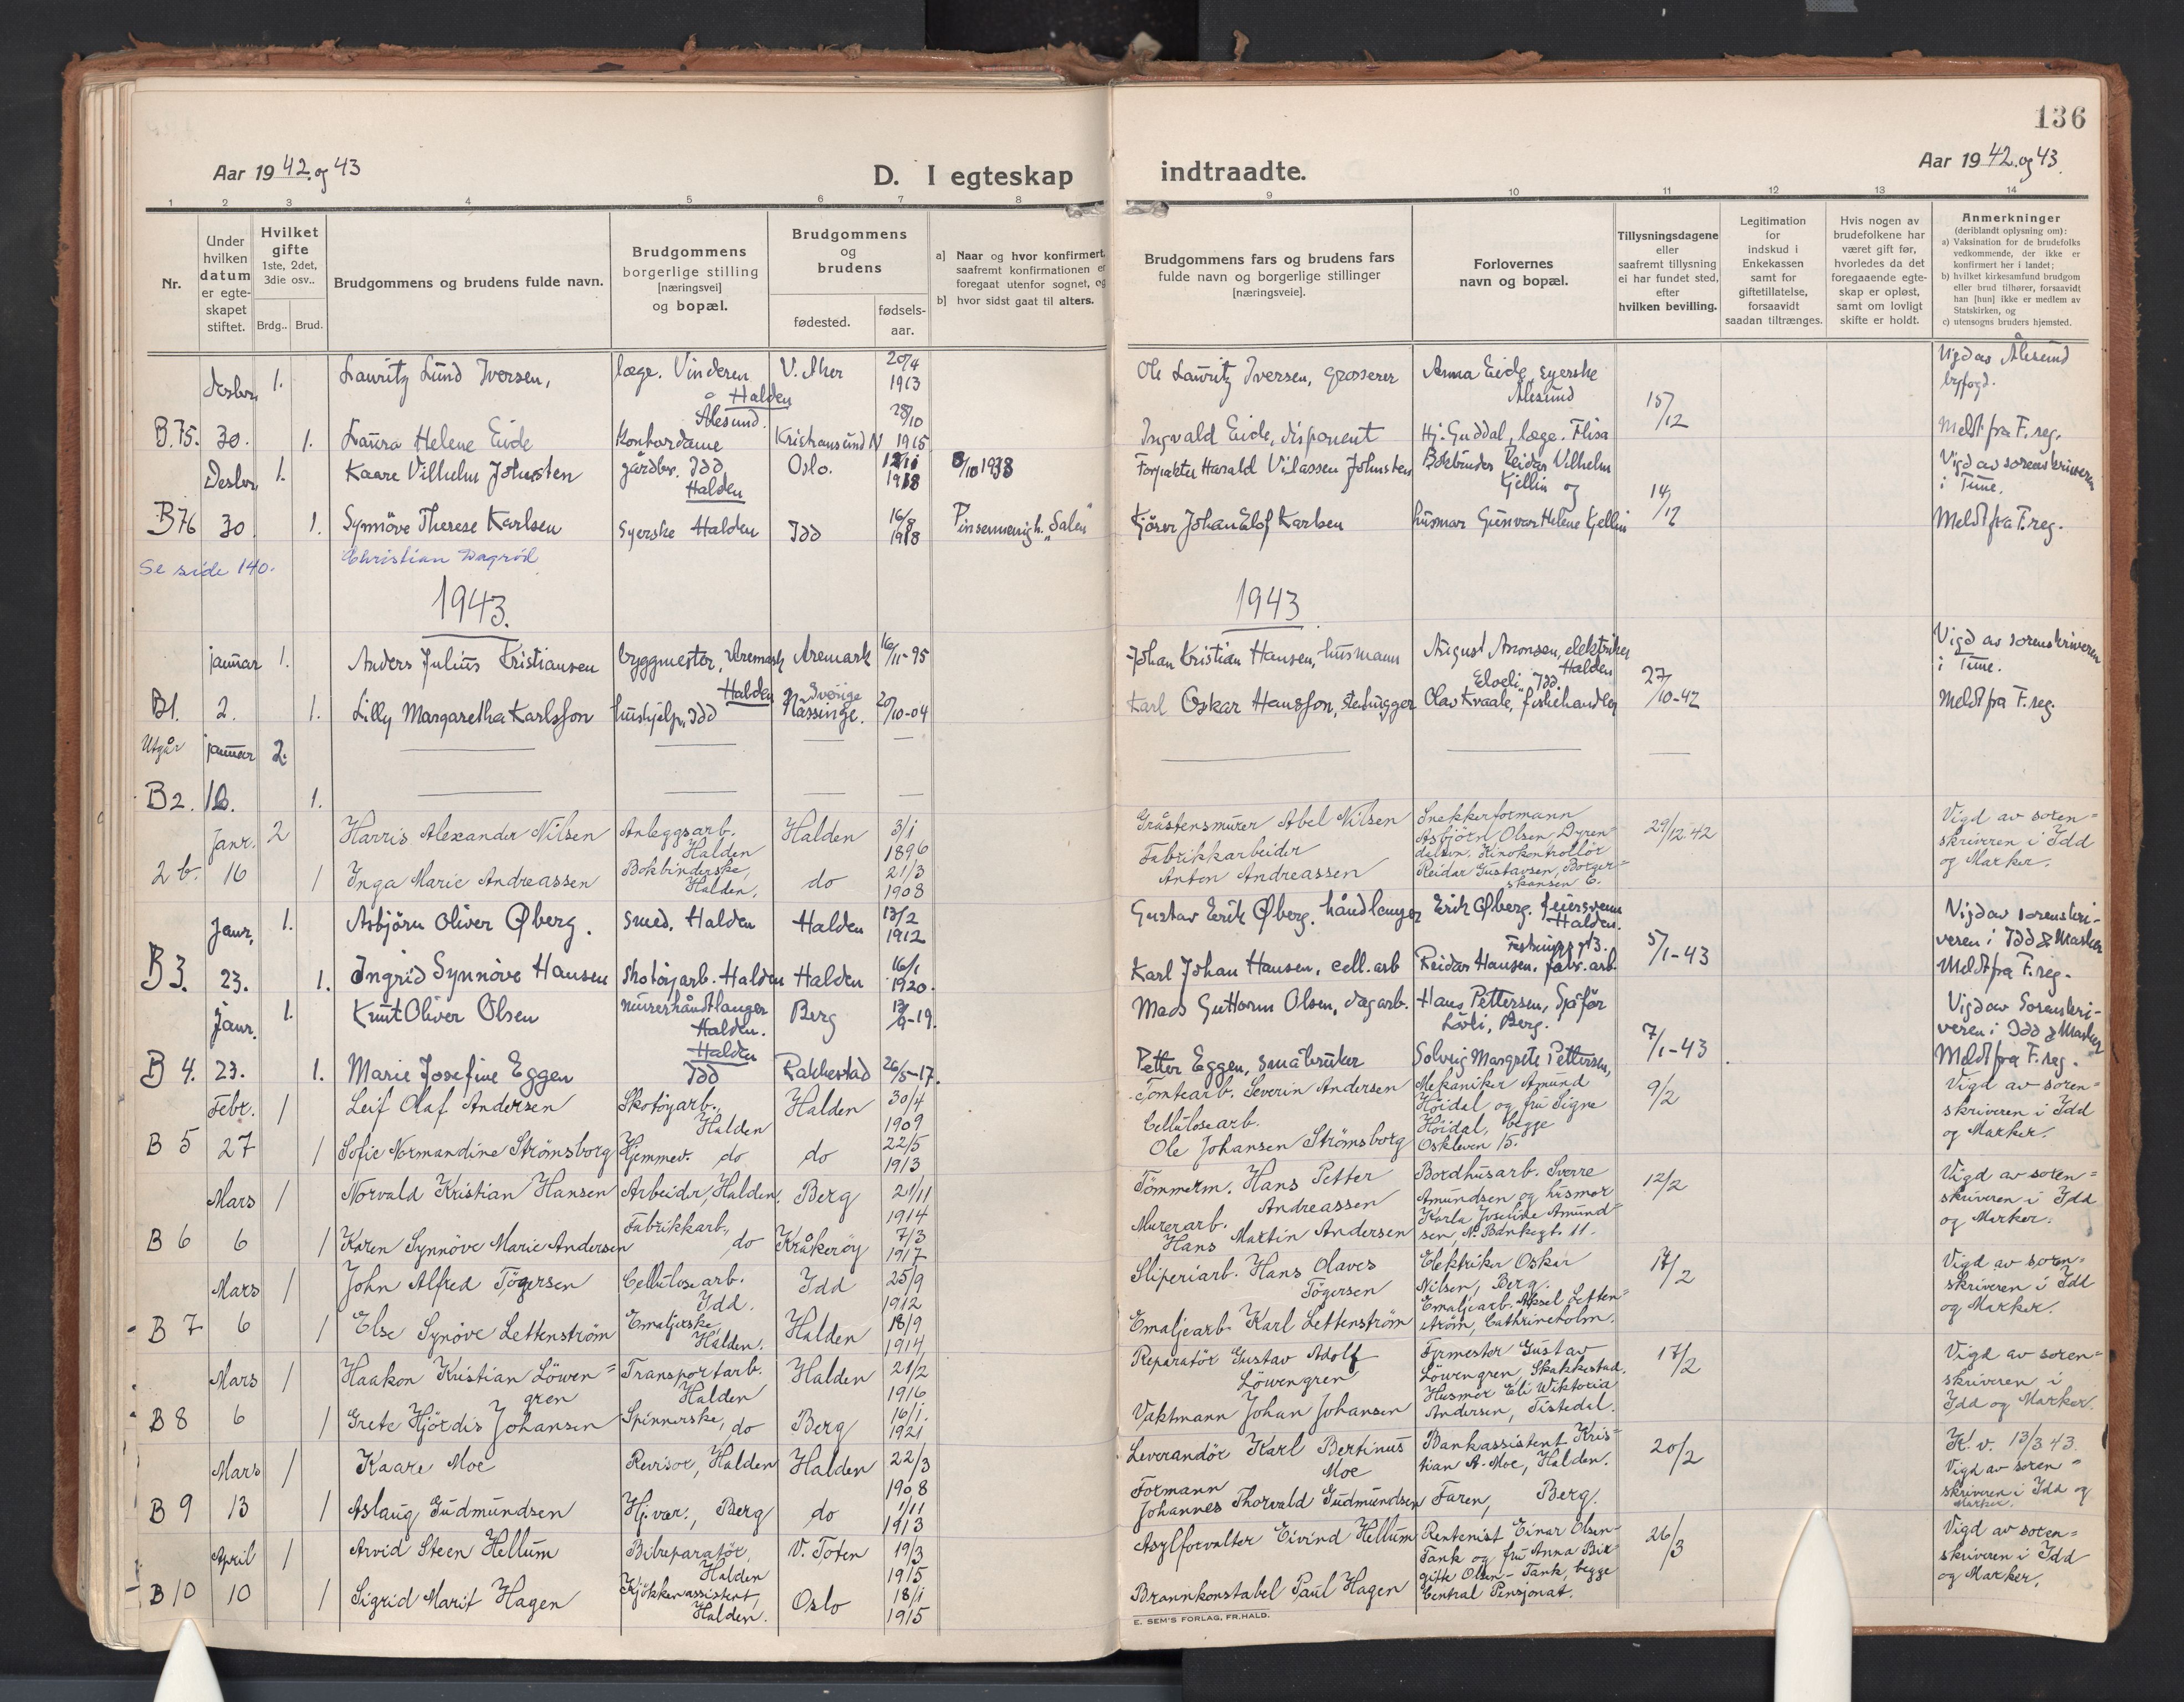 136
Aar 1942 og 43
D. I egteskap indtraadte.
Aar 1942 og 43.
1 2 3 4 5 6 7 8 9 10 11 12 13 14
Nr.
Under hvilken datum er egte-skapet stiftet.
Hvilket gifte 1ste, 2det, 3die osv..
Brdg.. Brud.
Brudgommens og brudens fulde navn.
Brudgommens borgerlige stilling [næringsvei] og bopæl.
Brudgommens og brudens
fødested. fødsels-aar.
a] Naar og hvor konfirmert, saafremt konfirmationen er foregaat utenfor sognet, og
b] hvor sidst gaat til alters.
Brudgommens fars og brudens fars fulde navn og borgerlige stillinger [næringsveie].
Forlovernes navn og bopæl.
Tillysningsdagene eller saafremt tillysning ei har fundet sted, efter hvilken bevilling.
Legitimation for indskud i Enkekassen samt for giftetillatelse, forsaavidt saadan tiltrænges.
Hvis nogen av brudefolkene har været gift før, hvorledes da det foregaaende egte-skap er opløst, samt om lovligt skifte er holdt.
Anmerkninger (deriblandt oplysning om):
a) Vaksination for de brudefolks vedkommende, der ikke er konfirmert her i landet;
b) hvilket kirkesamfund brudgom eller brud tilhører, forsaavidt han [hun] ikke er medlem av Statskirken, og
c) utensogns bruders hjemsted.
Desbr. 1. Lauritz Lund Iversen, læge. Vinderen Halden V. Aker 20/4 1913 Ole Lauritz Iversen, Grosserer Anna Eide, syerske Ålesund 15/12 Vigd av Ålesund byfogd.
B.75. 30. 1. Laura Helene Eide Ålesund. Kontordame Kristiansund N 28/10 1915 Ingvald Eide, disponent Hj. Guddal, læge. Flisa Meldt fra F. reg.
Desbr. 1. Kaare Vilhelm Johnsten gårdbr. Idd Halden Oslo. 1918 8/10 1933 Forpakter Harald Johnsten Bokbinder Reidar Vilhelm Kjellin og 14/12 Vigd av sorenskriveren i Tune.
B76 30 1. Synnöve Therese Karlsen Syerske Halden Idd 16/8 1918 Pinsemenigh. "Salen" Kjörer Johan Elof Karlsen husmor Gunvor Helene Kjellin Meldt fra F. reg.
Se side 140. Christian Dagröd
1943. 1943
januar 1. Anders Julius Kristiansen byggmester, Aremark Aremark 16/11-95 Johan Kristian Hansen, husmann August Aronsen, elektriker Halden 27/10-42 Vigd av sorenskriveren i Tune.
B1. 2. 1. Lilly Margaretha Karlsson Halden hushjelp, Idd Sverige Nässinge. 20/10-04 Karl Oskar Hansson, stenhugger Olav Kvaale, fiskehandler Meldt fra F. reg.
Utgår januar 2.
B2. 16. 1.
Janr. 2 Harris Alexander Nilsen Anleggsarb. Halden Halden 3/1 1896 Gråstensmurer Abel Nilsen Snekkerformann Asbjörn Olsen 29/12 42 Vigd av soren-skriveren i Idd og Marker.
2 b. 16 1 Inga Marie Andreassen Bokbinderske, Halden. do 21/3 1908 Fabrikkarbeider Anton Andreassen Kinokontrollör Reidar Gustavsen, Borger-skansen 6.
Janr. 1. Asbjörn Oliver Øberg. Smed. Halden Halden 13/2 1912 Gustav Erik Øberg. håndlanger Erik Øberg. feiersvenn Halden. 5/1-43 Vigd av sorenskri-veren i Idd & Marker
B3. 23. 1. Ingrid Synnöve Hansen Skotöyarb. Halden Halden 16/1 1920. Karl Johan Hansen, cell. arb Reidar Hansen, fabr. arb. Meldt fra F. reg.
Janr. 1. Knut Oliver Olsen murerhåndlanger Halden. Berg Mads Guttorm Olsen, dagarb. Hans Pettersen, Sjåför Berg. 7/1-43 Vigd av Sorenskri-veren i Idd & Marker
B 4. 23. 1. Marie Josefine Eggen Halden Idd Rakkestad 26/5-17. Petter Eggen, småbruker Solveig Margrete Pettersen, Meldt fra F. reg.
Febr. 1 Leif Olaf Andersen Skotöyarb., Halden Halden 30/4 1909 Tomtearb. Severin Andersen Mekaniker Amund Höidal og fru Signe Höidal, begge Oskleven 15. 9/2 Vigd av soren-skriveren i Idd og Marker.
B 5 27 1 Sofie Normandine Strømsborg Hjemmev. do do 22/5 1913 Cellulosearb. Ole Johansen Strømsborg
Mars 1 Norvald Kristian Hansen Arbeider, Halden. Berg 21/11 1914 Tömmerm. Hans Petter Andreassen Bordhusarb. Sverre Amundsen og husmor Karla Josefine Amund-sen, N. Bankegt. 11. 12/2 Vigd av soren-skriveren i Idd og Marker.
B 6 6 1 Karen Synnöve Marie Andersen Fabrikkarb., do Kråkeröy 7/3 1917 Murerarb. Hans Martin Andersen
Mars 1 John Alfred Tögersen Cellulosearb. Idd. Idd 25/9 1912 Sliperiarb. Hans Olaves Tögersen Elektriker Oskar Nilsen, Berg. 17/2 Vigd av soren-skriveren i Idd og Marker.
B 7 6 1 Else Synöve Lettenström Emaljerske, Halden. Halden 18/9 1914 Emaljearb. Karl Lettenström Emaljearb. Aksel Letten-ström, Cathrineholm.
Mars 1 Haakon Kristian Löwen-gren Transportarb. Halden Halden 21/2 1916 Reparatör Gustav Adolf Löwengren Fyrmester Gustav Löwengren, Skakkestad. 17/2 Vigd av soren-skriveren i Idd og Marker.
B 8 6 1 Grete Hjördis Johansen Spinnerske, do Berg 16/1. 1921 Vaktmann Johan Johansen Husmor Eli Wiktoria Andersen, Tistedal.
Mars 1 Kaare Moe Revisor, Halden Halden 22/3 1908 Leverandör Karl Bertinus Moe Bankassistent Kris-tian A. Moe, Halden. 20/2 K. v. 13/3 43. Vigd av soren-skriveren i Idd og Marker.
B 9 13 1 Aslaug Gudmundsen Hj.vær., Berg do 1/11 1913 Formann Johannes Thorvald Gudmundsen Faren, Berg.
April 1 Arvid Steen Hellum Bilreparatör, Halden V. Toten 19/3 1915 Asylforvalter Eivind Hellum Rentenist Einar Olsen-Tank og fru Anna Bir-gitte Olsen-Tank, begge Central Pensjonat. 26/3 Vigd av soren-skriveren i Idd og Marker.
B 10 10 1 Sigrid Marit Hagen Kjökkenassistent, Halden. Oslo 18/1 1915 Brannkonstabel Paul Hagen
E. SEM'S FORLAG, FR.HALD.